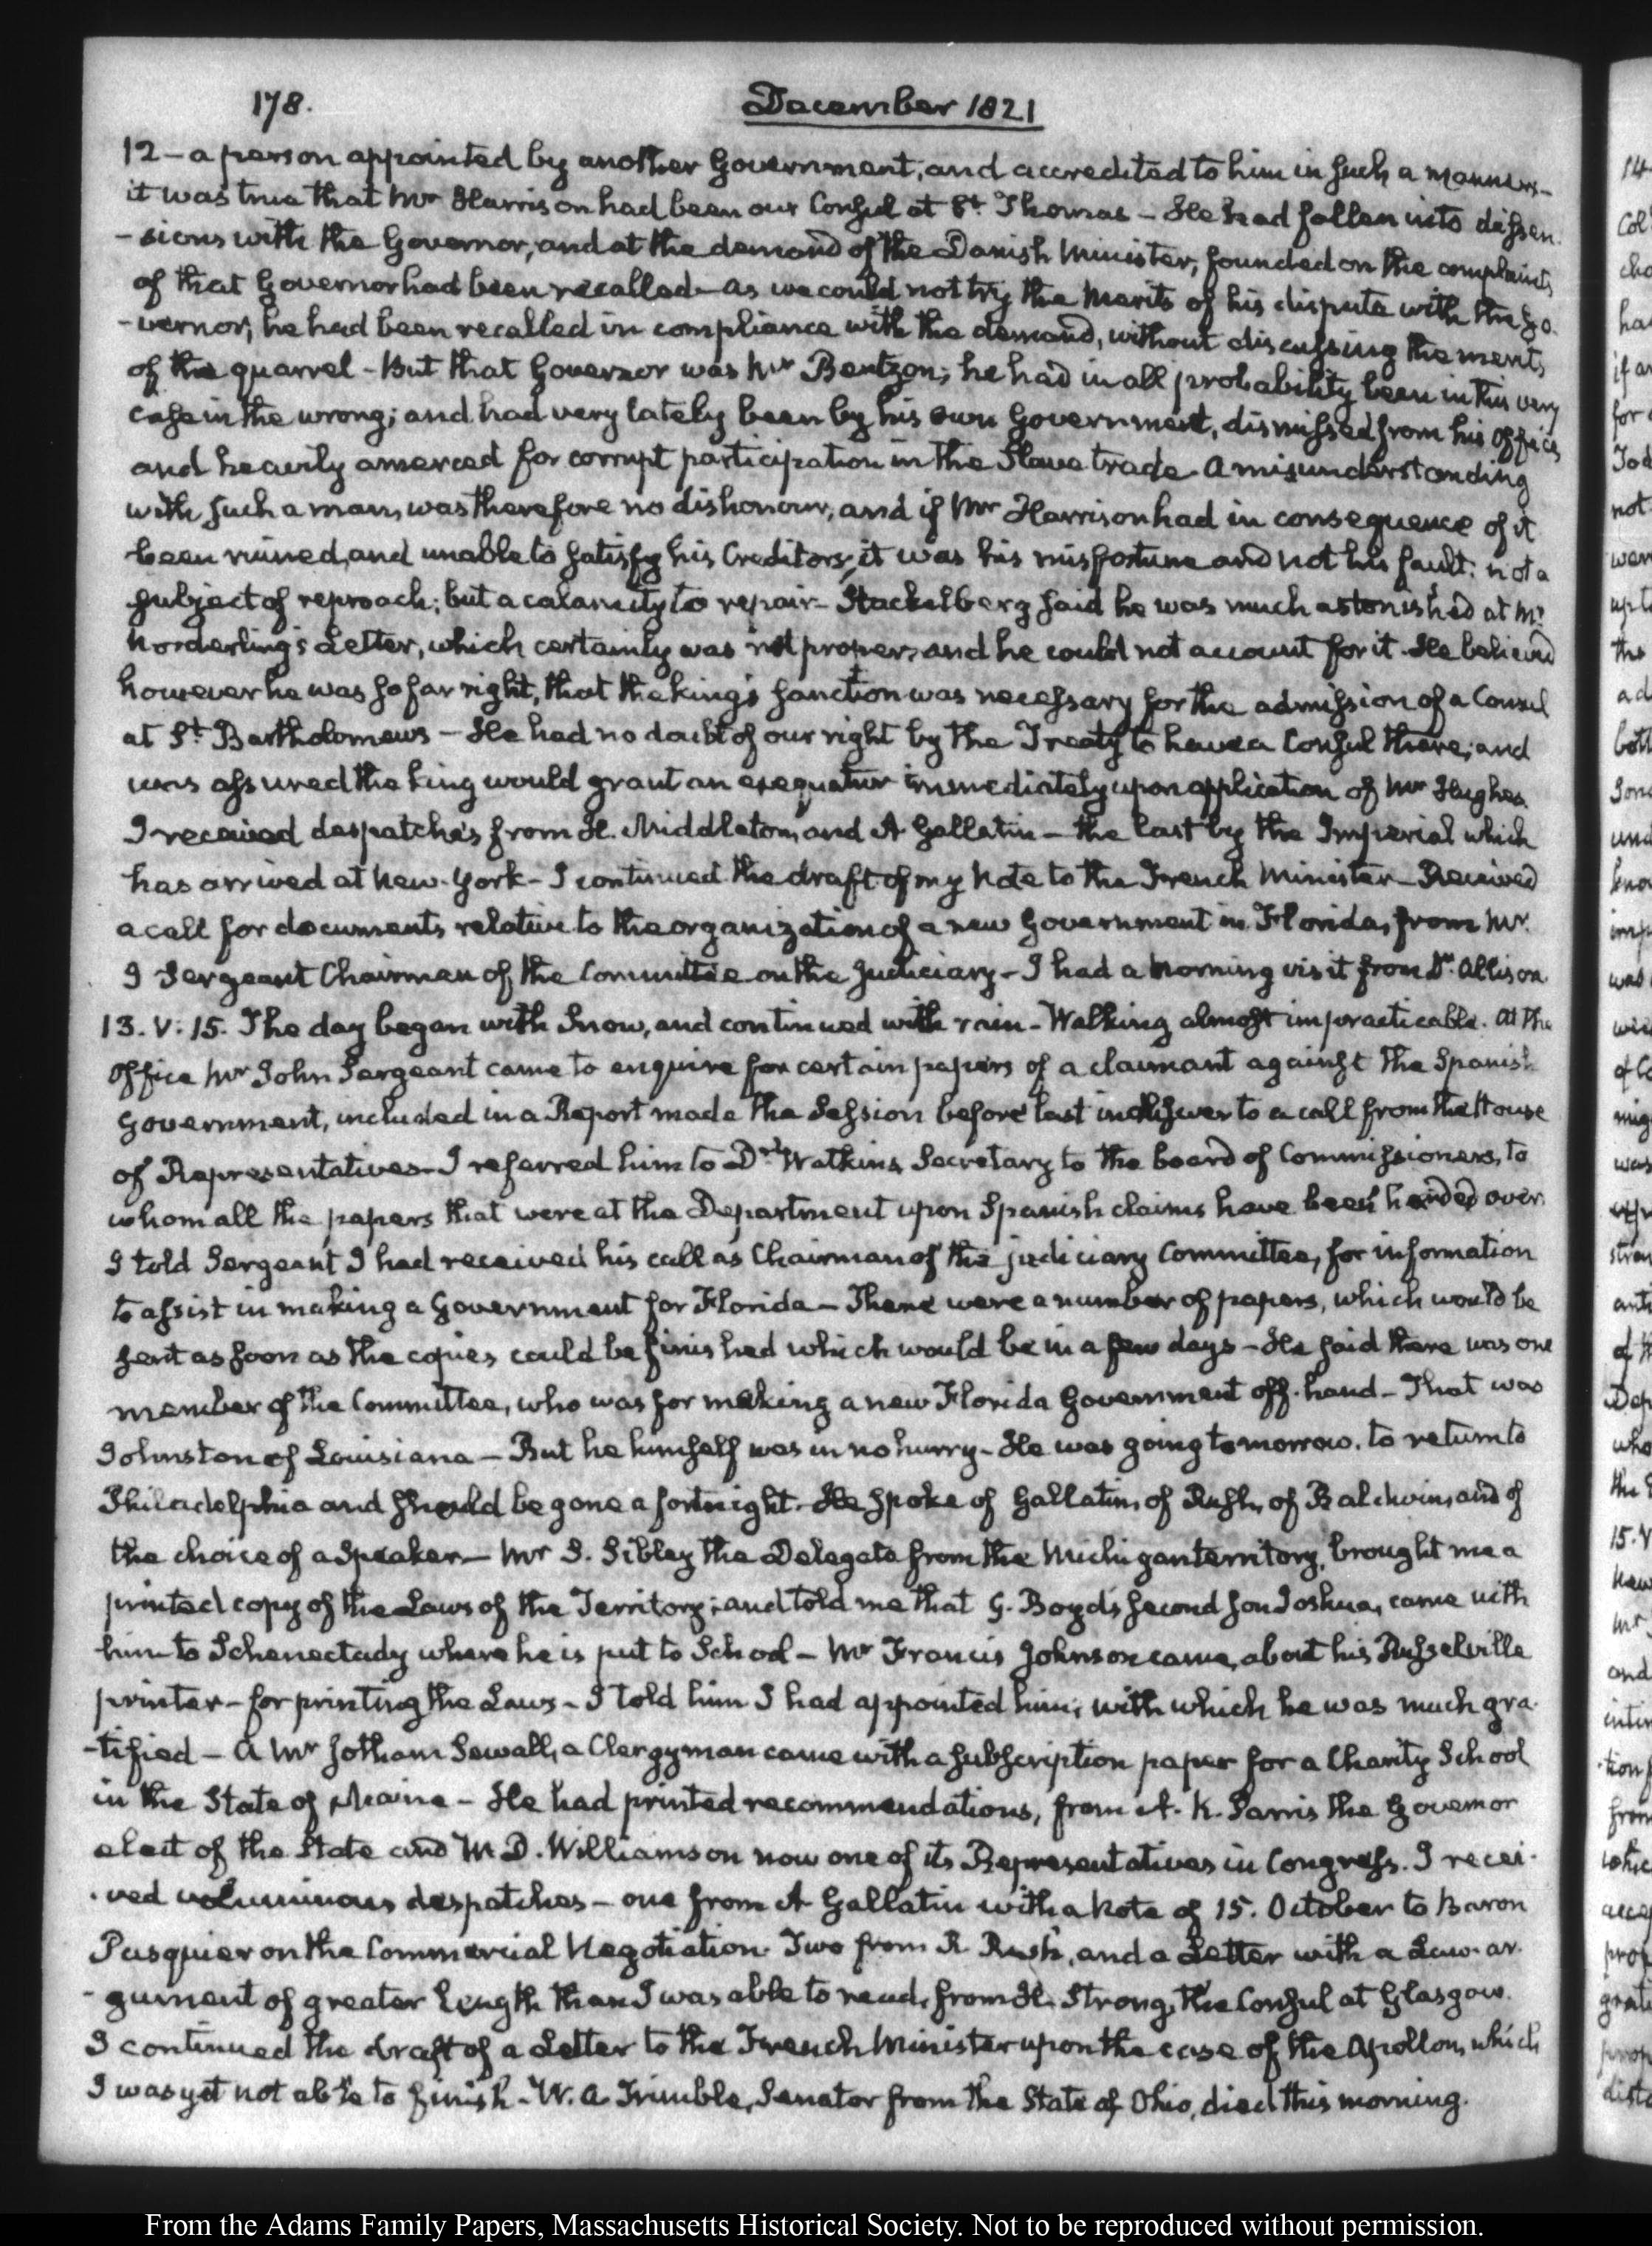 178.
December 1821
12 - a person appointed by another Government, and accredited to him in such a manner -
it was true that Mr Harrison had been our Consul at St. Thomas - He had fallen into dissen-
-sions with the Governor, and at the demand of the Danish Minister, founded on the complaints
of that Governor had been recalled - as we could not try the merits of his dispute with the Go-
-vernor, he had been recalled in compliance with the demand, without discussing the merits
of the quarrel - But that Governor was Mr Bentzon; he had in all probability been in this very
case in the wrong; and had very lately been by his own Government, dismissed from his Office,
and heavily amerced for corrupt participation in the Slave trade - a misunderstanding
with such a man, was therefore no dishonour, and if Mr Harrison had in consequence of it
been ruined, and unable to satisfy his Creditors, it was his misfortune and not his fault: not a
subject of reproach; but a calamity to repair - Stackelberg said he was much astonished at Mr
Norderling's Letter, which certainly was not proper, and he could not account for it - He believed
however he was so far right, that the king's sanction was necessary for the admission of a Consul
at St. Bartholomews - He had no doubt of our right by the Treaty to have a Consul there; and
was assured the king would grant an exequatur immediately upon application of Mr Hughes.
I received despatches from H. Middleton, and A Gallatin - the last by the Imperial which
has arrived at New-York - I continued the draft of my Note to the French Minister - Received
a call for documents relative to the organization of a new Government in Florida, from Mr.
J Sergeant Chairman of the Committee on the Judiciary - I had a morning visit from Dr. Allison.
13. V: 15. The day began with Snow, and continued with rain - Walking almost impracticable. At the
Office Mr John Sergeant came to enquire for certain papers of a claimant against the Spanish
Government, included in a Report made the Session before last in answer to a call from the House
of Representatives - I referred him to Dr. Watkins Secretary to the board of Commissioners, to
whom all the papers that were at the Department upon Spanish claims have been handed over.
I told Sergeant I had received his call as Chairman of the judiciary Committee, for information
to assist in making a Government for Florida - There were a number of papers, which would be
sent as soon as the copies could be finished which would be in a few days - He said there was one
member of the Committee, who was for making a new Florida Government off-hand - That was
Johnston of Louisiana - But he himself was in no hurry - He was going tomorrow, to return to
Philadelphia and should be gone a fortnight. He spoke of Gallatin, of Rush, of Baldwin, and of
the choice of a Speaker - Mr S. Sibley the Delegate from the Michigan territory, brought me a
printed copy of the Laws of the Territory; and told me that G. Boyd's second son Joshua, came with
him to Schenectady where he is put to School - Mr Francis Johnson came, about his Russelville
printer - for printing the Laws - I told him I had appointed him; with which he was much gra-
-tified - A Mr Jotham Sewall, a Clergyman came with a subscription paper for a Charity School
in the State of Maine - He had printed recommendations, from A. K. Parris the Governor
elect of the State and W. D. Williamson now one of its Representatives in Congress. I recei-
-ved voluminous despatches - one from A Gallatin with a Note of 15. October to Baron
Pasquier on the Commercial Negotiation. Two from R. Rush, and a Letter with a Law-ar-
-gument of greater length than I was able to read, from H. Strong, the Consul at Glasgow.
I continued the draft of a Letter to the French Minister upon the case of the Apollon, which
I was yet not able to finish - W. A Trimble, Senator from the State of Ohio, died this morning.
From the Adams Family Papers, Massachusetts Historical Society. Not to be reproduced without permission.